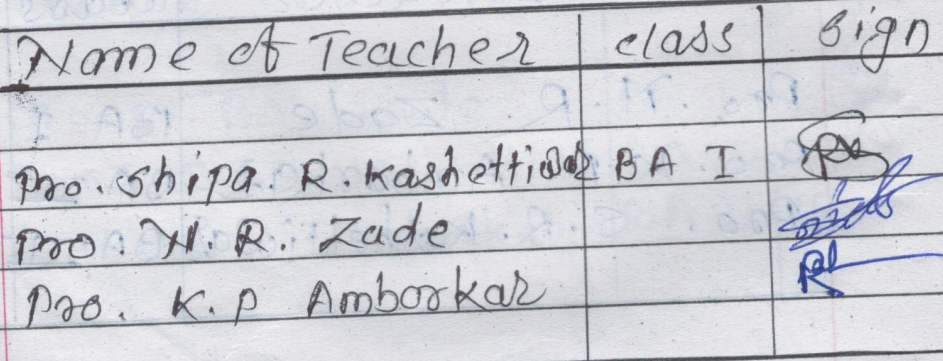 Name of Teacher class sign
Pro. Shipa. R. Kashettiwar BA I
Pro. N. R. Zade
Pro. K.P Amborkar